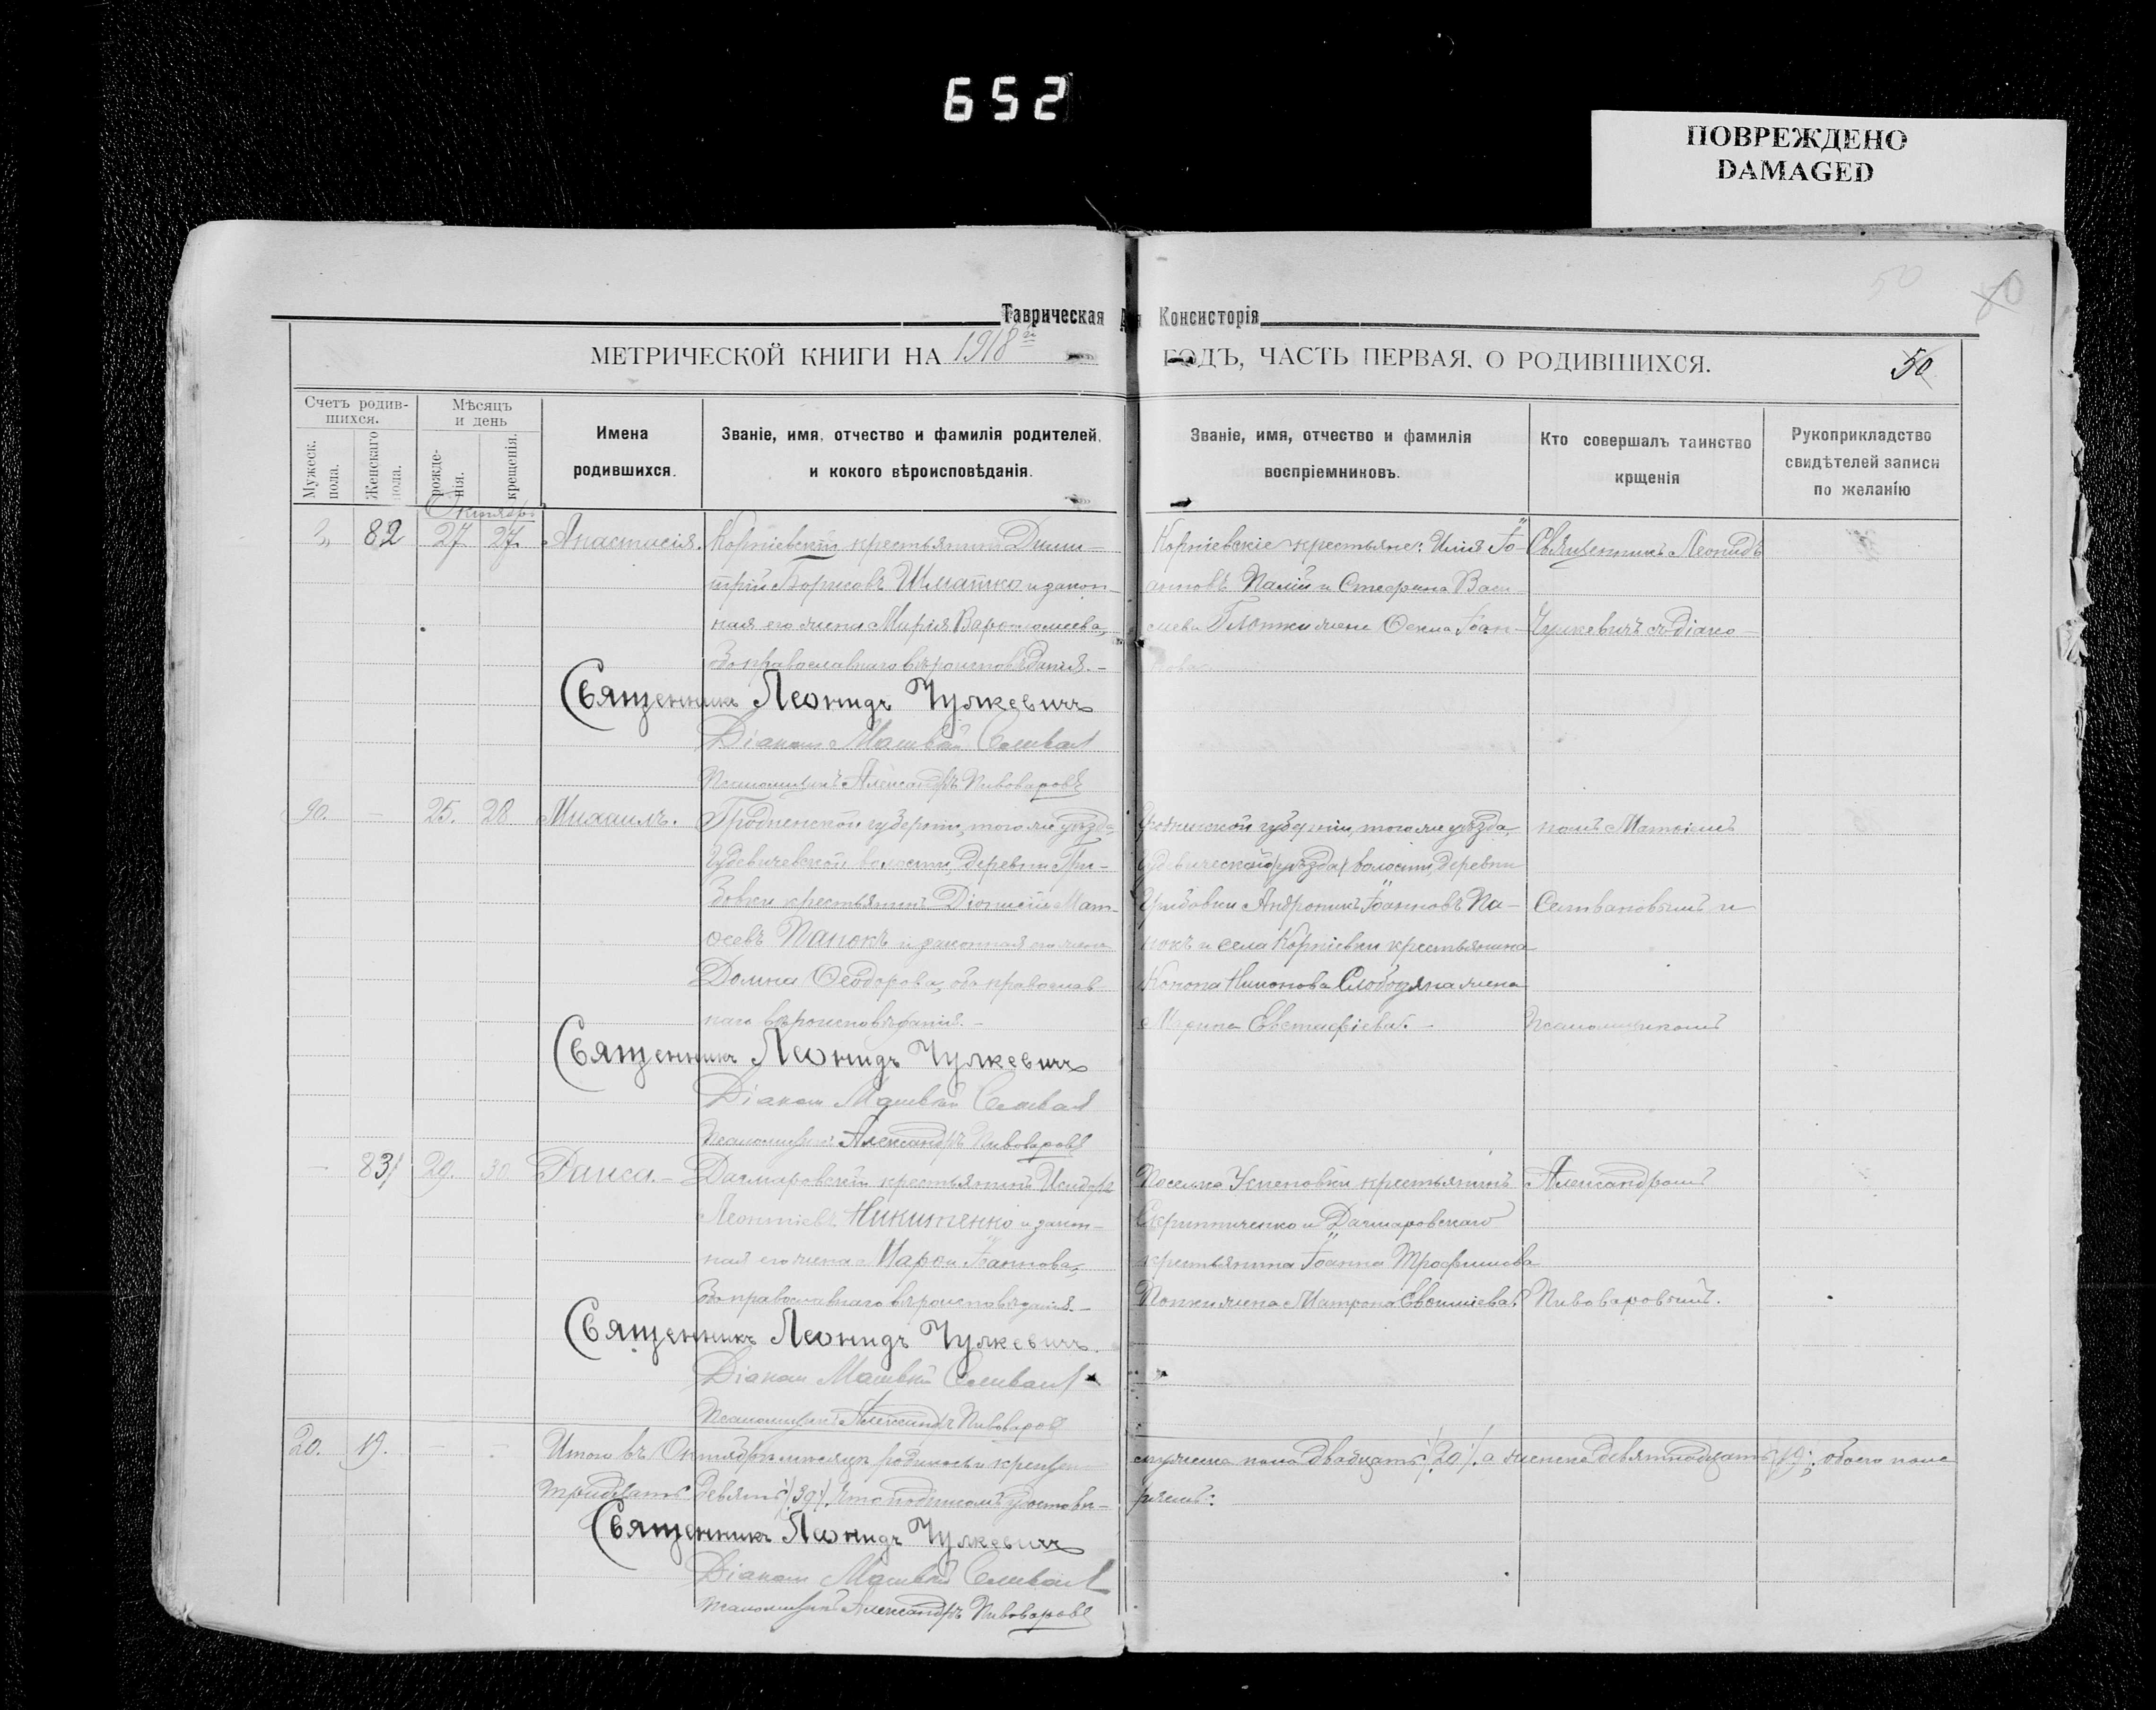 652
ПОВРЕЖДЕНО
DAMAGED
50
Таврическая Консисторія
МЕТРИЧЕСКОЙ КНИГИ НА 1918 й ГОДЪ, ЧАСТЬ ПЕРВАЯ, О РОДИВШИХСЯ.
50
Счетъ родив-
шихся.
Мужеск. пола.
Женскаго пола.
Мѣсяцъ
и день
рожде-
нія.
крещенія.
Имена
родившихся.
Званіе, имя, отчество и фамилія родителей,
и кокого вѣроисповѣданія.
Званіе, имя, отчество и фамилія
воспріемниковъ.
Кто совершалъ таинство
крщенія
Рукоприкладство
свидѣтелей записи
по желанію
Октябрь
82 27 27 Анастасія. Корніевскій крестьянинъ Дими-
трій Борисовъ Шматко и закон-
ная его жена Марія Варѳоломеева,
оба православнаго вѣроисповѣданія.
Корніевскіе крестьяне: Илія Іо-
анновъ Палій и Стефана Васи-
Священникъ Леонидъ
Чулкевичъ съ діако-
Священникъ Леонидъ Чулкевичъ
Діаконъ Матвѣй Селивановъ
Псаломщикъ Александръ Пивоваровъ
90. - 25. 28 Михаилъ. Гродненской губерніи, того же уѣзда,
волости, деревни Гри-
бовки крестьянинъ Діонисій Мат-
ѳеевъ Панокъ и законная его жена
Домна Ѳеодорова, оба православ
наго вѣроисповѣданія. -
Гродненской губерніи, того же уѣзда,
волости, деревни
Грибовки Андроникъ Іоанновъ Па-
нокъ и села Корніевки крестьянина
Конона Никонова Слободяна жена
Марина Евстафіева. -
номъ Матѳіемъ
Селивановымъ и
Псаломщикомъ
Священникъ Леонидъ Чулкевичъ
Діаконъ Матвѣй Селивановъ
Псаломщикъ Александръ Пивоваровъ
- 83 29. 30 Раиса. - Дагмаровскій крестьянинъ Исидоръ
Леонтіевъ Никитенко и закон-
ная его жена Марѳа Іоаннова,
оба православнаго вѣроисповѣданія. -
Поселка Успеновки крестьянинъ
и Дагмаровскаго
крестьянина Іоанна Трофимова
Попки жена Матрона
Александромъ
Пивоваровымъ.
Священникъ Леонидъ Чулкевичъ.
Діаконъ Матвѣй Селивановъ
Псаломщикъ Александръ Пивоваровъ
20. 19. - - Итого въ Октябрѣ мѣсяцѣ родилось и крещено
мужеска пола двадцать /20/, а женска девятнадцать /19/; обоего пола
тридцать девять /39/. Что подписомъ удостовѣ-
ряемъ:
Священникъ Леонидъ Чулкевичъ
Діаконъ Матвѣй Селивановъ
Псаломщикъ Александръ Пивоваровъ